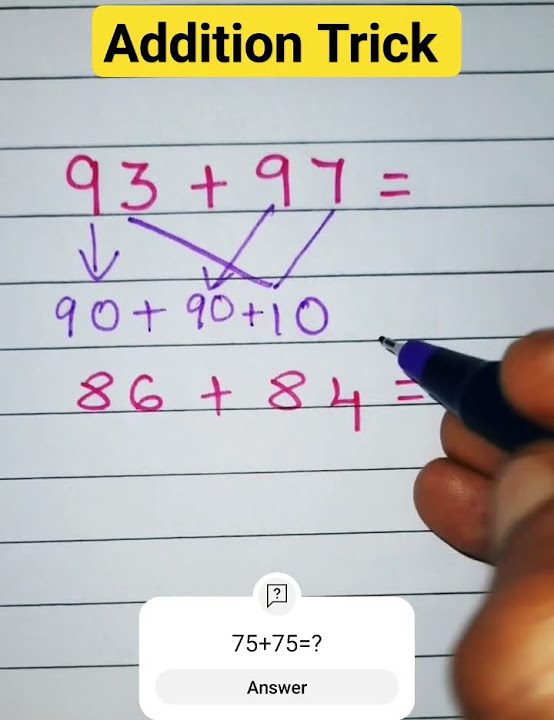 Addition Trick
93 + 97 =
90 + 90 + 10
86 + 84 =
75+75=?
Answer